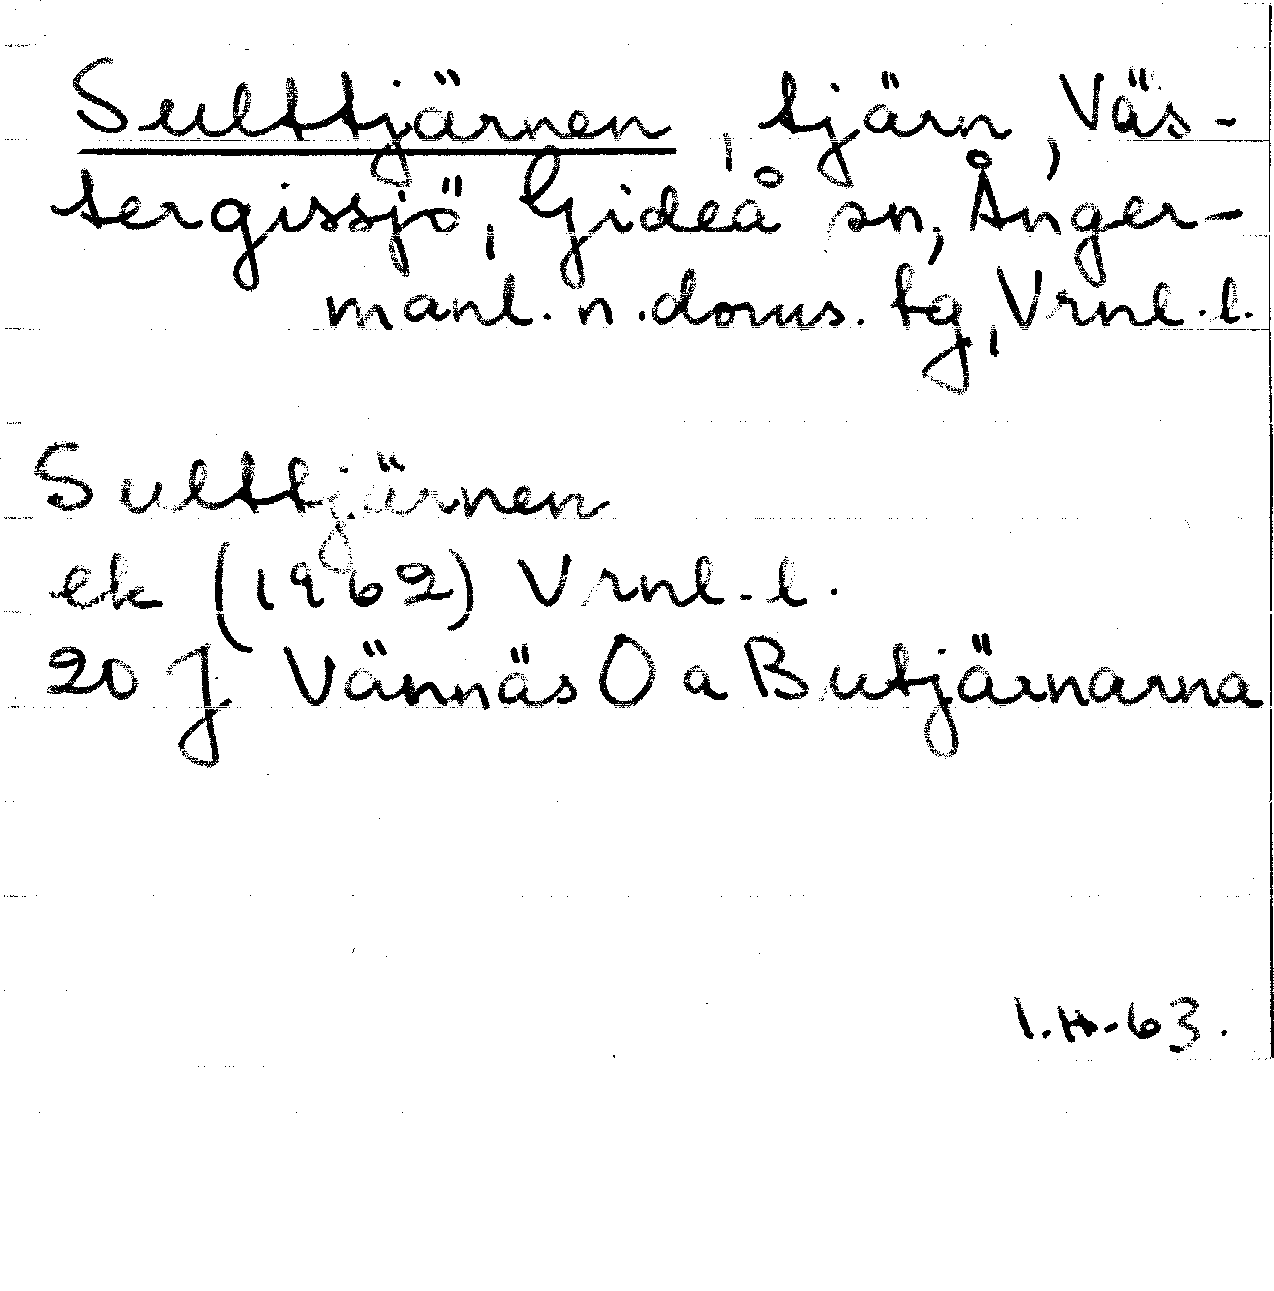 Sulttjärnen, tjärn, Väs-
tergissjö, Gideå sn, Ånger-
manl. n. doms. tg, Vrnl. l.
Sulttjärnen
ek (1962) Vrnl. l.
20 J Vännäs O a Butjärnarna
I.H-63.